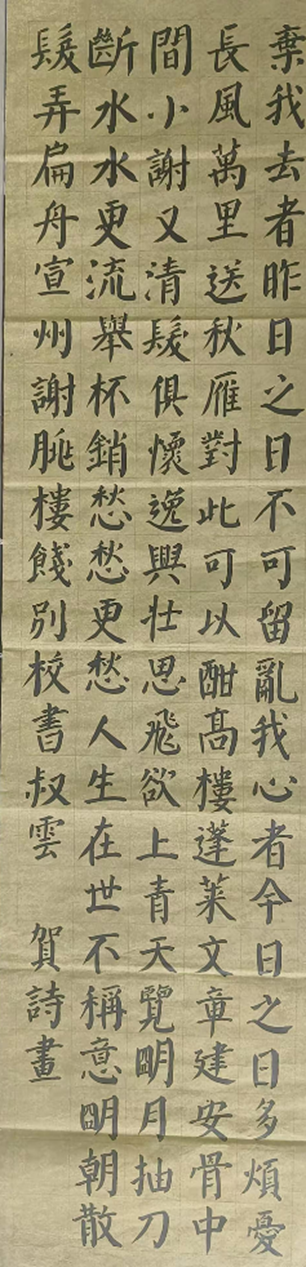 棄我去者昨日之日不可留亂我心者今日之日多煩憂
長風萬里送秋雁對此可以酣高樓蓬萊文章建安骨中
間小謝又清髮俱懷逸興壯思飛欲上青天覽明月抽刀
斷水水更流舉杯銷愁愁更愁人生在世不稱意明朝散
髮弄扁舟宣州謝朓樓餞別校書叔雲 賀詩畫